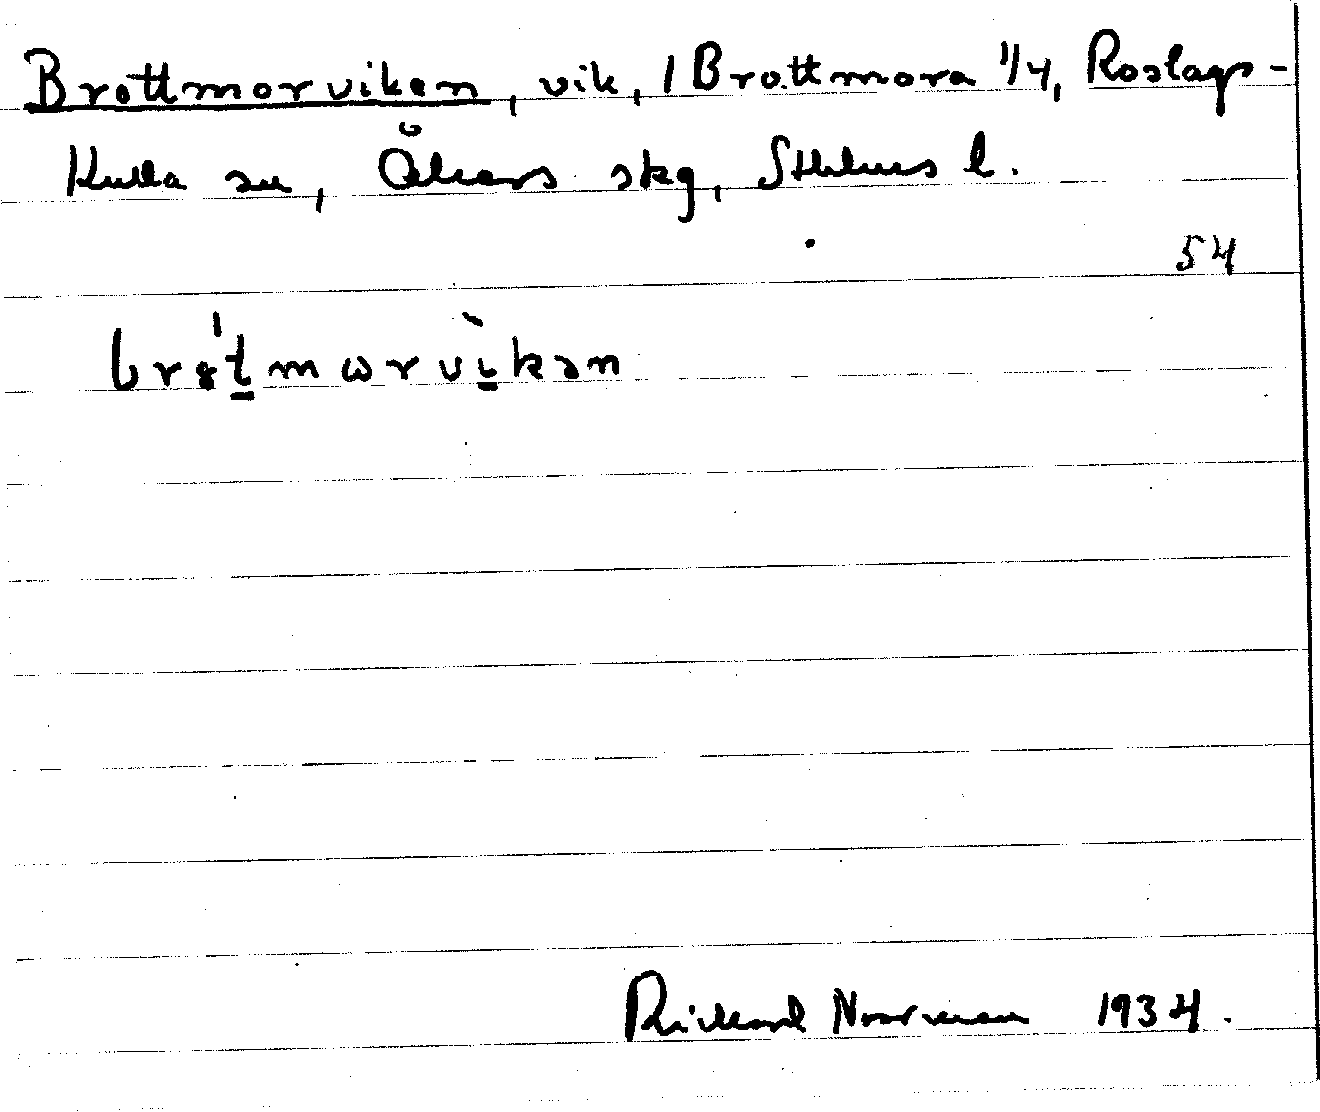 Brottmorviken, vik, i Brottmora 1/4, Roslags-
Kulla sn, Åkers skg, Sthlms l.
54
Rickard Norrman 1934.